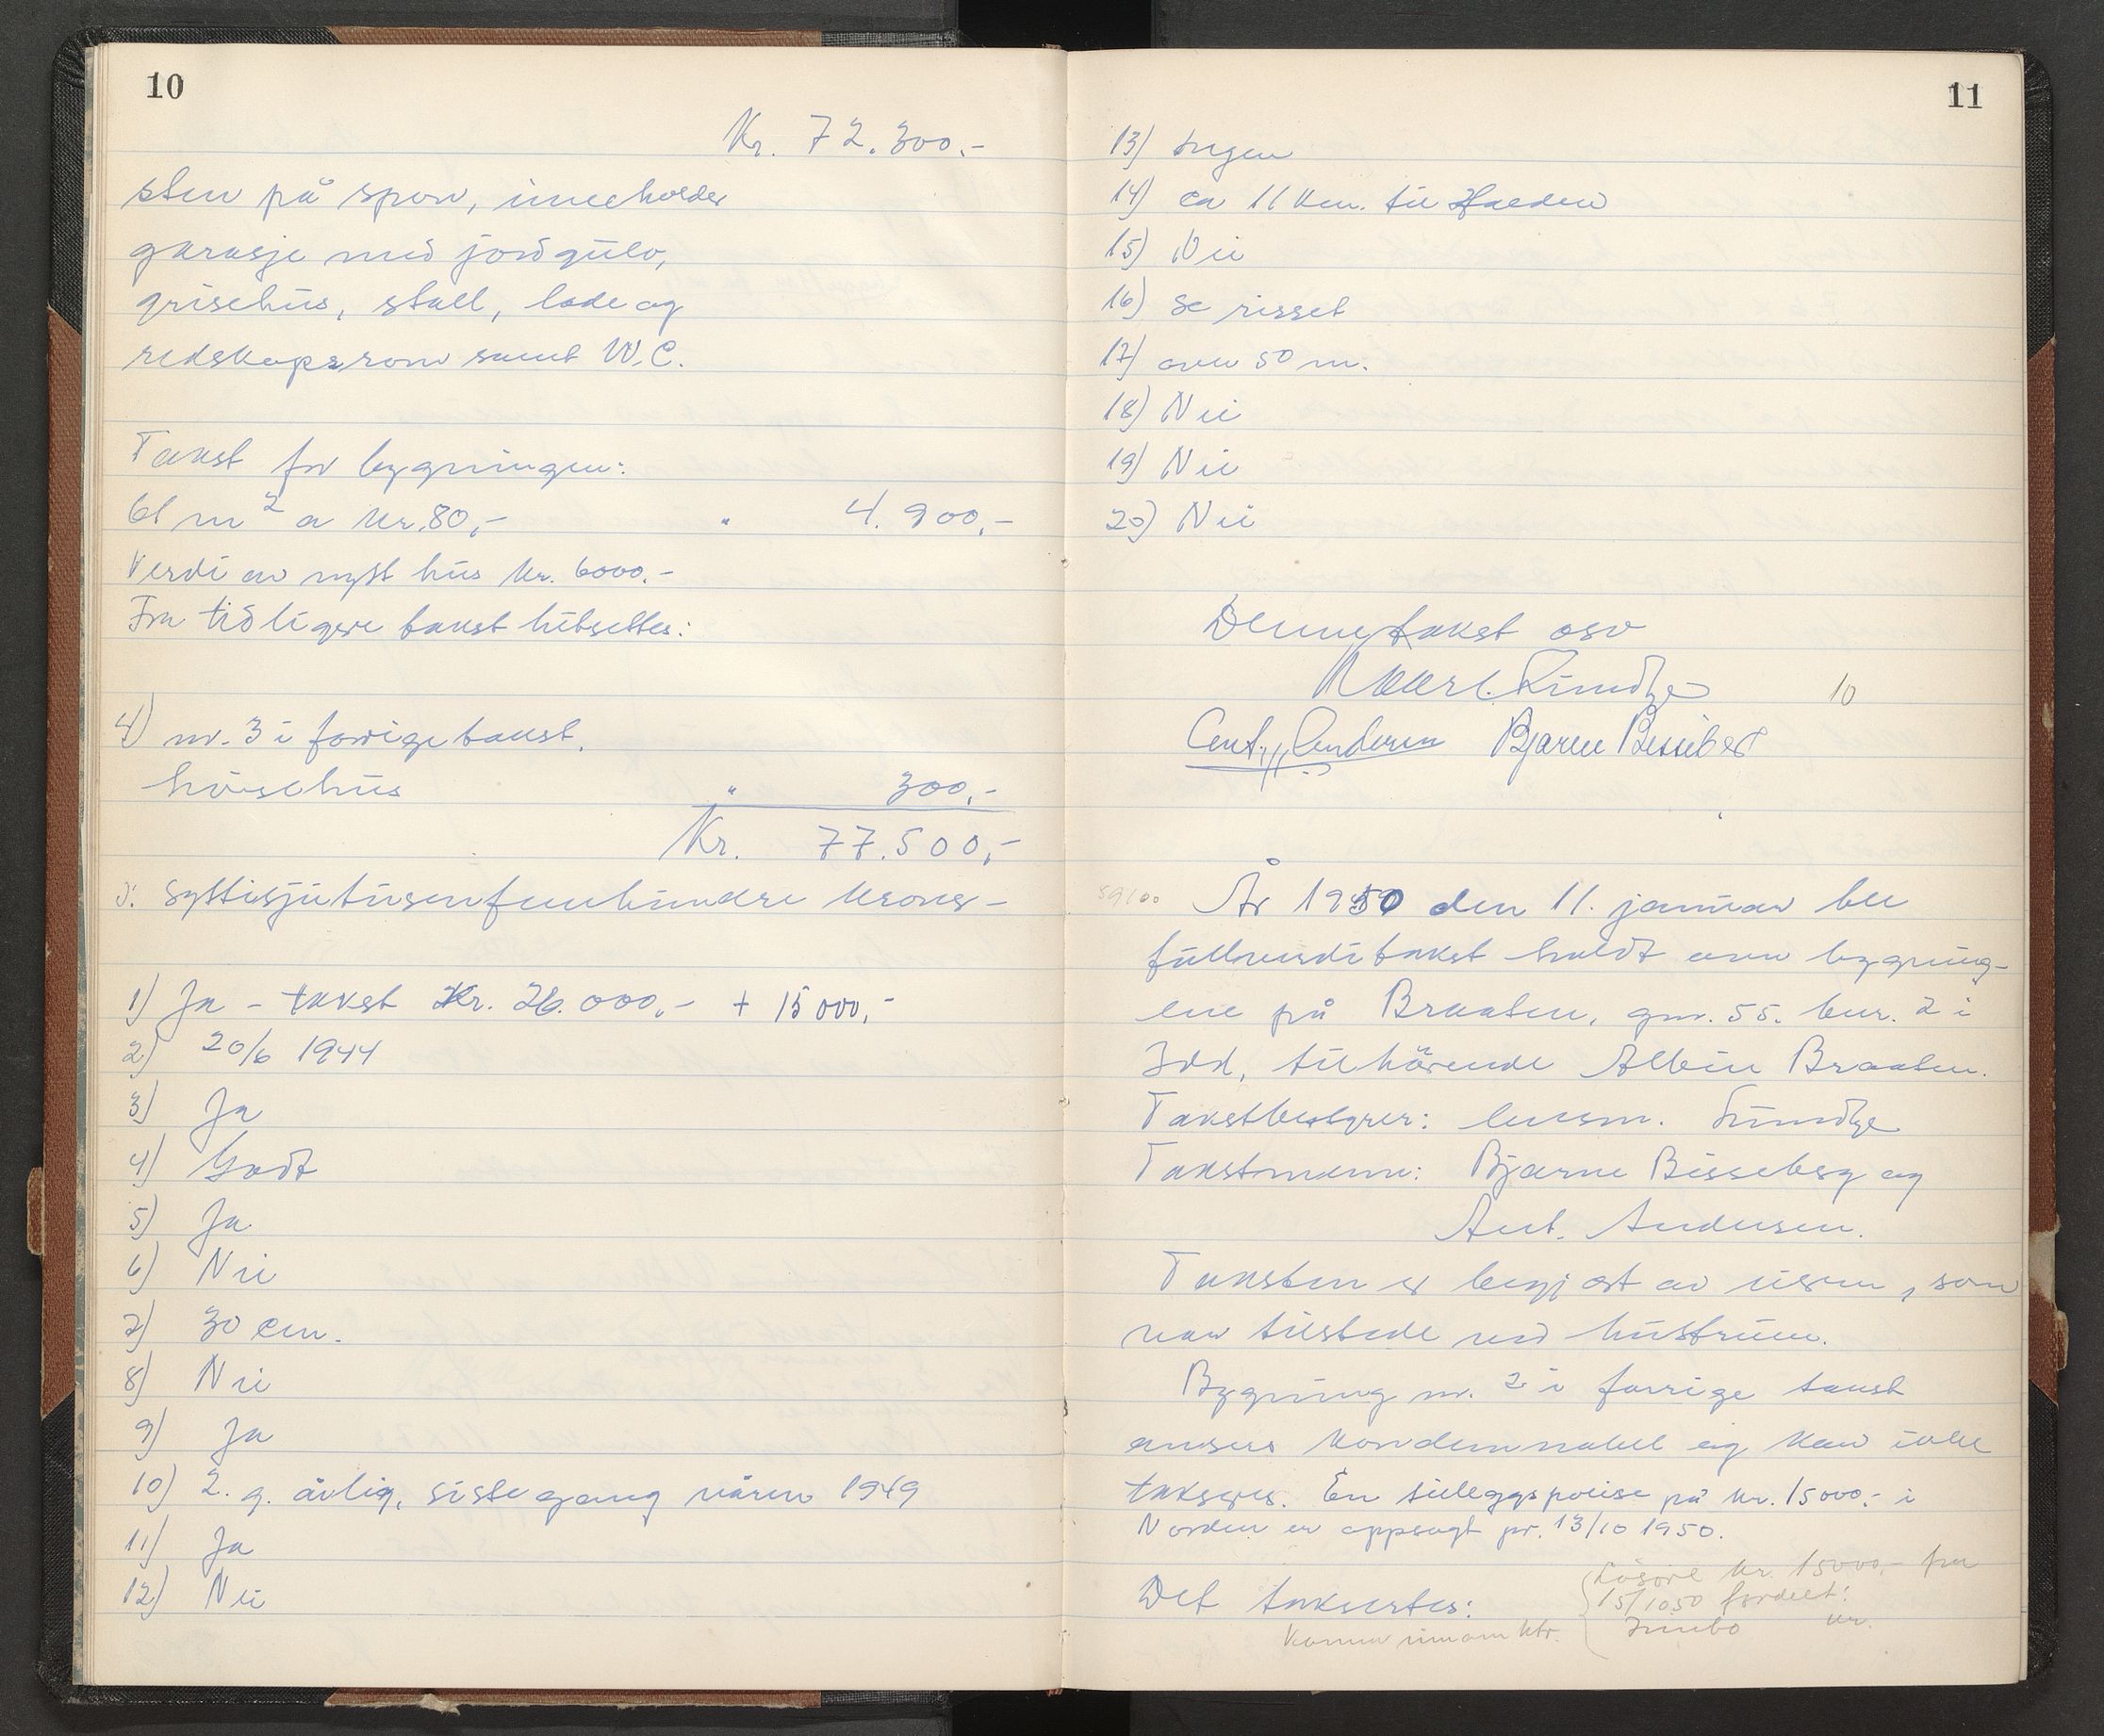 10
Kr. 72.300.-
sten på spon, inneholder
garasje med jordgulv,
grisehus, stall, lade og
redskapsrom samt W.C.
Takst for bygningen:
61 m² a kr. 80,- " 4.900,-
Verdi av nytt hus kr. 6000.-
Fra tidligere takst hitsettes:
4) nr. 3 i forrige takst.
hønsehus " 300,-
Kr. 77.500,-
Syttisjutusenfemhundre kroner-
1) Ja - takst Kr. 26.000,- + 15 000,-
2) 20/6 1944
3) Ja
4) Godt
5) Ja
6) Nei
7) 30 cm.
8) Nei
9) Ja
10) 2. g. årlig, siste gang våren 1949
11) Ja
12) Nei
11
13) Ingen
14) ca 11 km. til Halden
15) Nei
16) Se risset
17) over 50 m.
18) Nei
19) Nei
20) Nei
Denne takst osv
10
Ant. Andersen Bjarne Bisseberg
59/00 År 1950 den 11. januar ble
fullverditakst holdt over bygning-
ene på Braaten, gnr. 55. bnr. 2 i
Idd, tilhørende Albin Braaten.
Takstbestyrer: lensm.
Takstmenn: Bjarne Bisseberg og
Ant. Andersen.
Taksten er begjært av eieren, som
var tilstede ved hustruen.
Bygning nr. 2 i forrige takst
ansees kondemnabel og kan ikke
takseres. En tilleggspolise på kr. 15000,- i
Norden er oppsagt pr. 13/10 1950.
Det taksertes:
Løsøre kr. 15000,- fra
15/10 50 fordelt:
Innbo kr.